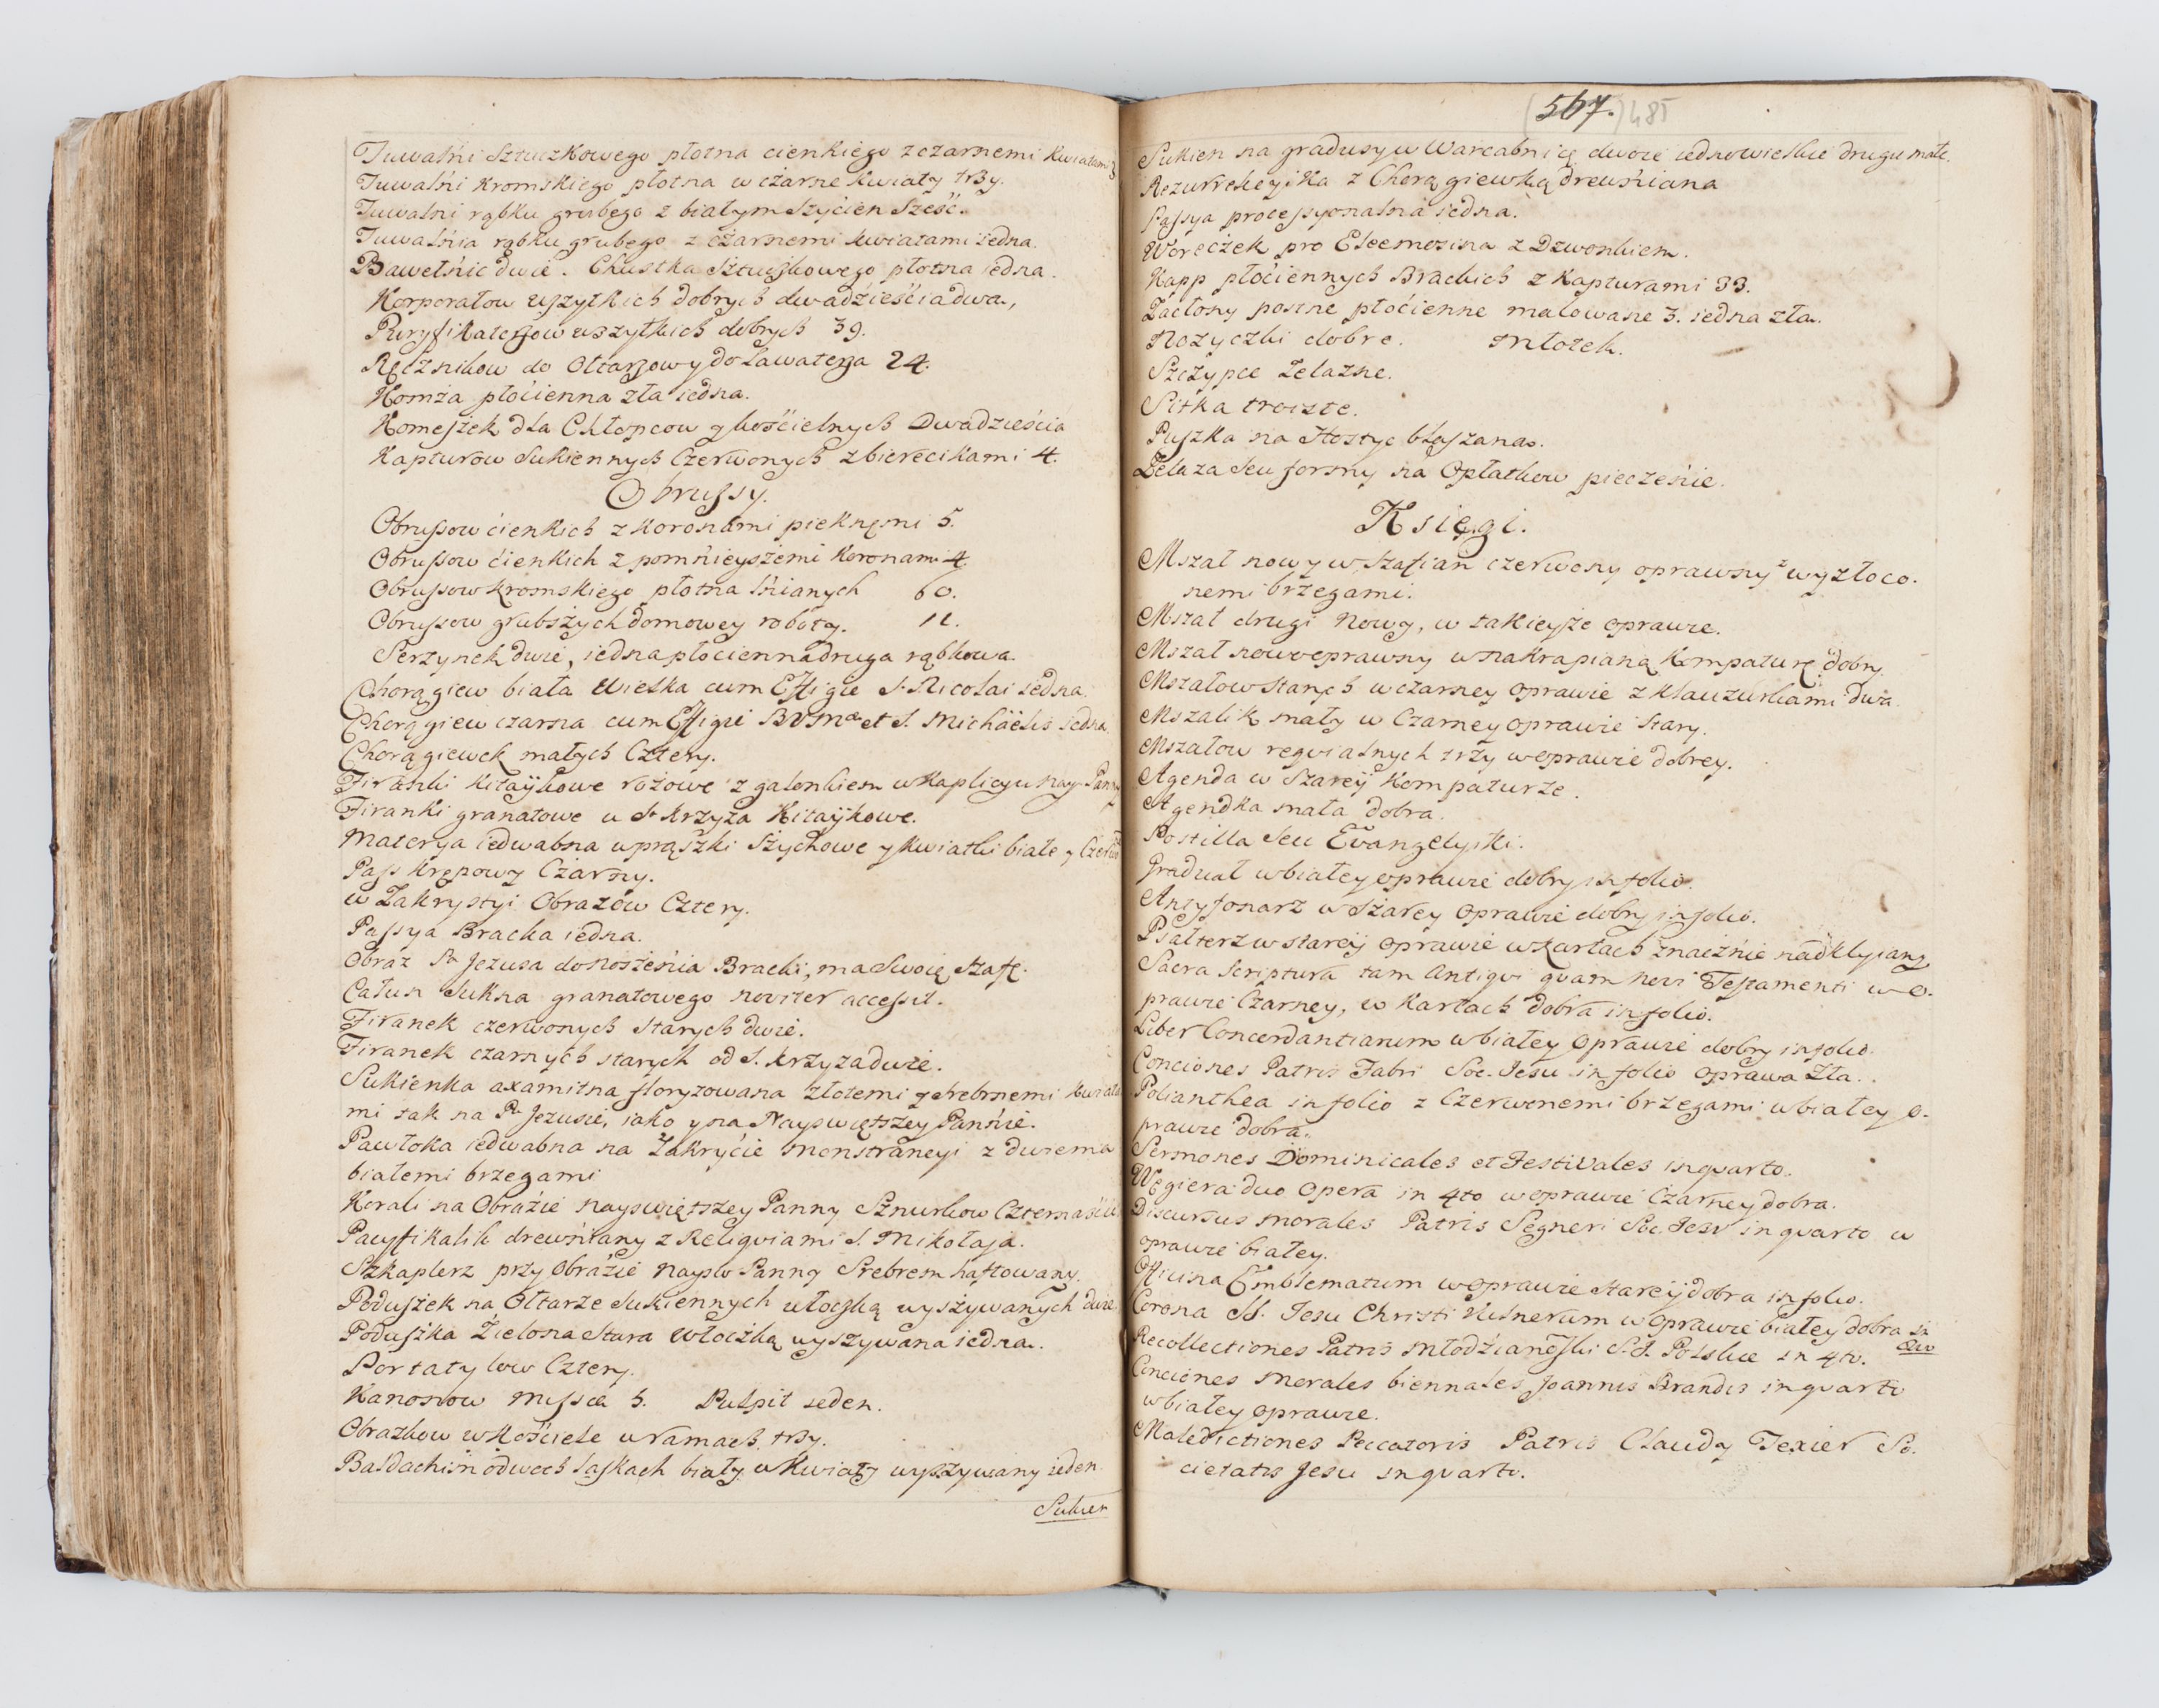 Tuwalni Sztuczkowego płotna cienkiego z czarnemi kwiatami 3
Tuwalni Kromskiego płotna w czarne kwiaty trzy.
Tuwalni rąbku grubego z białym szyciem sześć.
Tuwalnia rąbku grubego z czarnemi kwiatami iedna.
Bawełnic dwie. Chustka Sztuczkowego płotna iedna.
Korporałow wszytkich dobrych dwadzieścia dwa,
Puryfikaterzow wszytkich dobrych 39.
Ręcznikow do Ołtarzow y do Lawaterza 24.
Komża płócienna zła iedna.
Komeżek dla Chłopcow y kościelnych Dwadzieścia
Kapturow Sukiennych Czerwonych z birecikami 4.
Obrussy.
Obrussow cienkich z koronami pieknęmi 5.
Obrussow cienkich z pomnieyszemi koronami 4.
Obrussow kromskiego płotna lnianych 60.
Obrussow grubszych domowey roboty. 11.
Serzynek dwie, iedna płocienna druga rąbkowa.
Chorągiew biała wielka cum Effigie S. Nicolai iedna.
Chorągiew czarna cum Effigie BVMæ et S. Michäelis iedna.
Chorągiewek małych Cztery.
Firanki kitaykowe rożowe z galonkiem w Kaplicy u Nay. Panny
Firanki granatowe u S. Krzyża Kitaykowe.
Materya iedwabna w prążki Szychowe y kwiatki białe y Czerwo
Pass Krepowy Czarny.
w Zakrystyi Obrazów Cztery.
Passya Bracka iedna.
Obraz Pa Jezusa do noszenia Bracki, ma Swoię szafę.
Całun Sukna granatowego noviter accessit.
Firanek czerwonych starych dwie.
Firanek czarnych starych od S. Krzyza dwie.
Sukienka axamitna floryzowana złotemi y srebrnemi kwiata
mi tak na Pa Jezusie, iako y na Nayswiętszey Pannie.
Pawłoka iedwabna na Zakrycie Monstrancyi z dwiema
białemi brzegami
Korali na Obrazie Nayswiętszey Panny Sznurkow Czternaście
Pacyfikalik drewniany z Reliqviami S. Mikołaja.
Szkaplerz przy Obrazie Nayśw Panny Srebrem haftowany.
Poduszek na Ołtarze Sukiennych włoczką wyszywanych dwie
Poduszka Zielona Stara Włoczką wyszywana iedna.
Portatylow Cztery.
Kanonow Missæ 5. Pulpit ieden.
Obrazkow w Kościele w ramach trzy.
Baldachim o dwoch laskach biały w Kwiaty wyszywany ieden
Sukien
567. 485
Sukien na gradusy w Warcabnicę dwoie iedno wielkie drugie małe.
Rezurrekcyika z Chorągiewką drewniana
Passya processyonalna iedna.
Woreczek pro Eleemozina z Dzwonkiem.
Kapp płóciennych Brackich z Kapturami 33.
Zasłony postne płócienne malowane 3. iedna zła.
Nożyczki dobre. Młotek.
Szczypce Zelazne.
Sitka troiste.
Puszka na Hostye blaszana.
Zelaza Seu formy na Opłatkow pieczenie.
Księgi.
Mszał nowy w Szafian czerwony oprawny z wyzłoco.
nemi brzegami.
Mszał drugi Nowy, w takieyże oprawie.
Mszał nowooprawny w nakrapianą Kompaturę dobry.
Mszałow starych w czarney oprawie z klauzurkami dwa.
Mszalik mały w Czarney oprawie stary.
Mszałow reqvialnych trzy w oprawie dobrey.
Agenda w Szarey Kompaturze.
Agendka mała dobra.
Postilla Seu Evangelyiki.
Graduał w białey oprawie dobry in folio.
Antyfonarz w Szarey oprawie dobry in folio.
Psałterz w starey oprawie w kartach znacznie nadklyiany
Sacra Scriptura tam Antiqvi qvam Novi Testamenti w o.
prawie Czarney, w kartach dobra in folio.
Liber Concordantiarum w białey oprawie dobry in folio.
Conciones Patris Fabri Soc. Jesu in folio oprawa zła.
Polianthea in folio z Czerwonemi brzegami w białey o.
prawie dobra.
Sermones Dominicales et Festivales in qvarto.
Węgiera duo Opera in 4to w oprawie Czarney dobra.
Discursus Morales Patris Segneri Soc. Jesu in qvarto w
oprawie białey.
Officina Emblematum w oprawie starey dobra in folio.
Corona SS. Jesu Christi Vulnerum w oprawie białey dobra in
Recollectiones Patris Młodzianoski S. J. Polskie in 4to. 8vo
Conciones Morales biennales Joannis Brandis in qvarto
w białey oprawie.
Maledictiones Peccatoris Patris Claudy Texier So.
cietatis Jesu in qvarto.